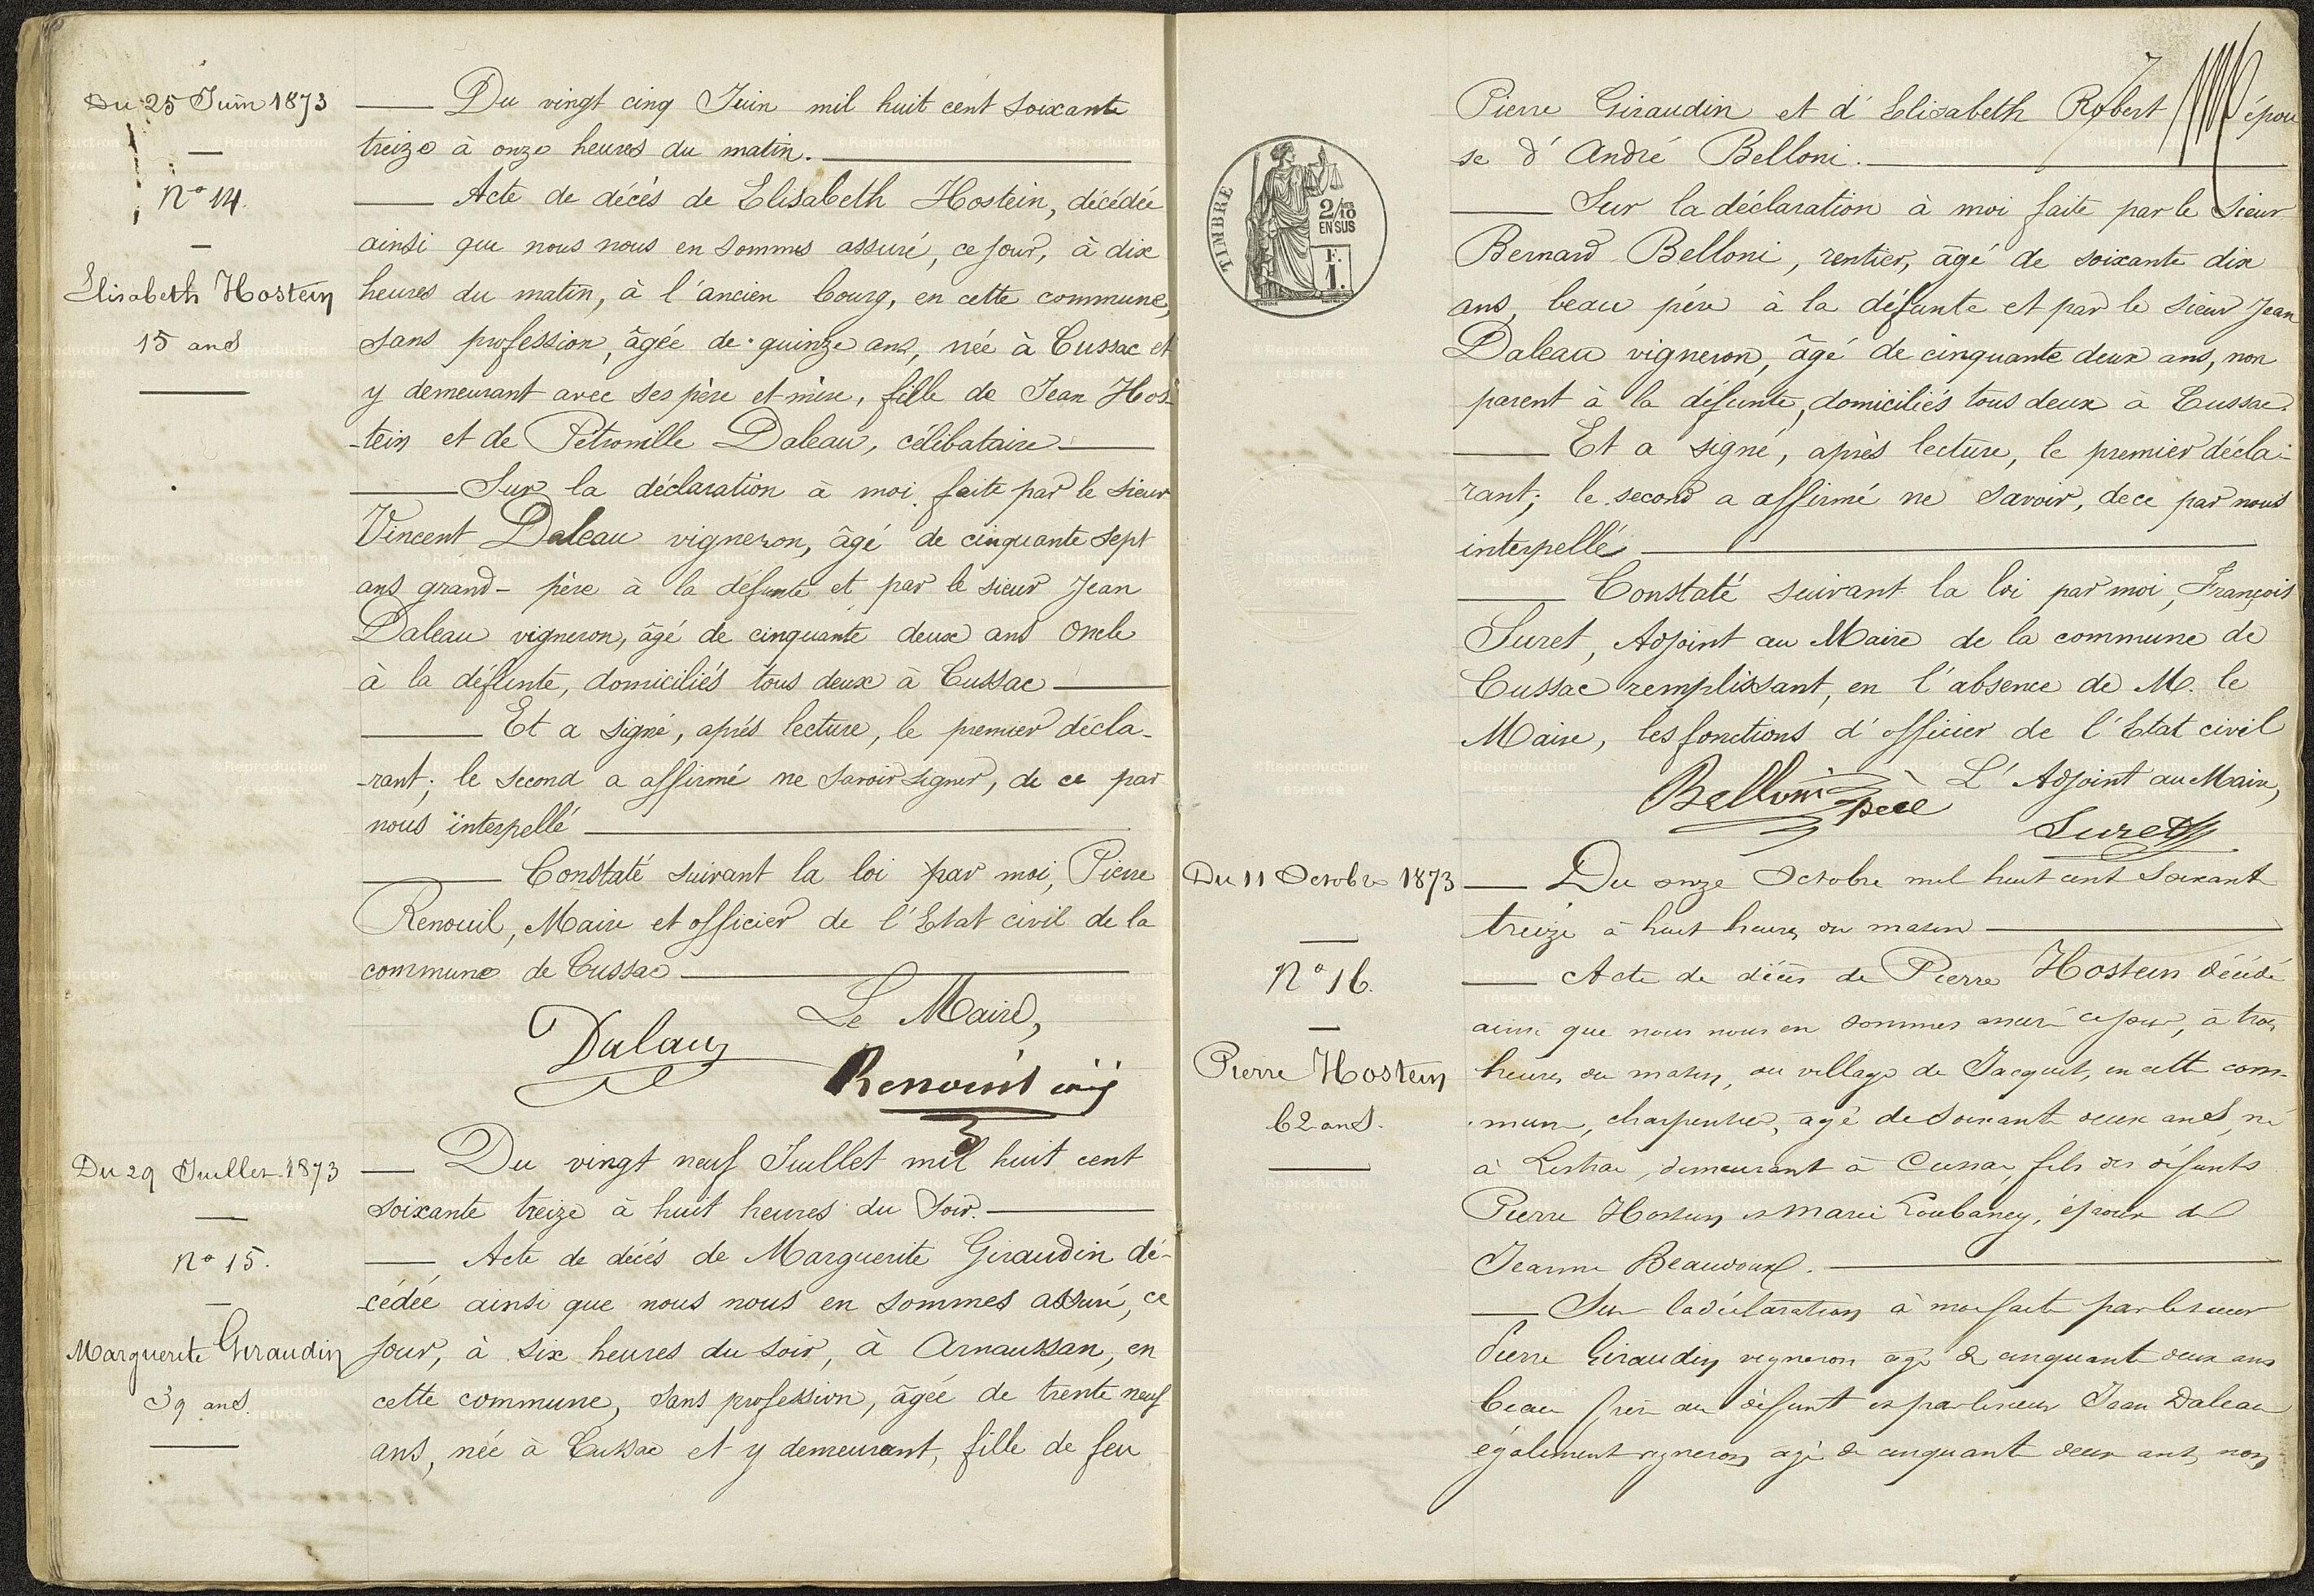 Du 25 Juin 1873
N° 14.
Elisabeth Hostein
15 ans
Du vingt cinq Juin mil huit cent soixante
treize à onze heures du matin.
Acte de décès de Elisabeth Hostein, décédée
ainsi que nous nous en sommes assuré, ce jour, à dix
heures du matin, à l'ancien bourg, en cette commune,
sans profession, âgée de quinze ans, née à Cussac et
y demeurant avec ses père et mère, fille de Jean Hos-
-tein et de Pétronille Daleau, célibataire
Sur la déclaration à moi faite par le sieur
Vincent Daleau vigneron, âgé de cinquante sept
ans grand-père à la défunte et par le sieur Jean
Daleau vigneron, âgé de cinquante deux ans oncle
à la défunte, domiciliés tous deux à Cussac
Et a signé, après lecture, le premier décla-
-rant; le second a affirmé ne savoir signer, de ce par
nous interpellé
Constaté suivant la loi par moi, Pierre
Renouil, Maire et officier de l'Etat civil de la
commune de Cussac
Le Maire,
Dalau
Renouil
Du 29 Juillet 1873
N° 15.
Marguerite Giraudin
39 ans.
Du vingt neuf Juillet mil huit cent
soixante treize à huit heures du soir.
Acte de décès de Marguerite Giraudin dé-
-cédée ainsi que nous nous en sommes assuré, ce
jour, à six heures du soir, à Arnaussan, en
cette commune, sans profession, âgée de trente neuf
ans, née à Cussac et y demeurant, fille de feu
TIMBRE
2/10
EN SUS
F.
1.
Pierre Giraudin et d'Elisabeth Robert épou
se d'André Belloni.
Sur la déclaration à moi faite par le sieur
Bernard Belloni, rentier, âgé de soixante dix
ans, beau père à la défunte et par le sieur Jean
Daleau vigneron, âgé de cinquante deux ans, non
parent à la défunte, domiciliés tous deux à Cussac.
Et a signé, après lecture, le premier décla-
rant; le second a affirmé ne savoir, de ce par nous
interpellé
Constaté suivant la loi par moi, François
Suret, Adjoint au Maire de la commune de
Cussac remplissant, en l'absence de M. le
Maire, les fonctions d'officier de l'Etat civil
L'Adjoint au Maire,
Belloni père
Suret
Du 11 Octobre 1873
N° 16.
Pierre Hostein
62 ans.
Du onze Octobre mil huit cent soixante
treize à huit heures du matin
Acte de décès de Pierre Hostein décédé
ainsi que nous nous en sommes assuré ce jour, à trois
heures du matin, au village de Jacquet, en cette com-
-mune, charpentier, âgé de soixante deux ans, né
à Listrac, demeurant à Cussac, fils des défunts
Pierre Hostein et Marie Loubaney, époux de
Jeanne Beaudoux.
Sur la déclaration à moi faite par le sieur
Pierre Giraudin vigneron âgé de cinquante deux ans
beau frère au défunt et par le sieur Jean Daleau
également vigneron âgé de cinquante deux ans, non